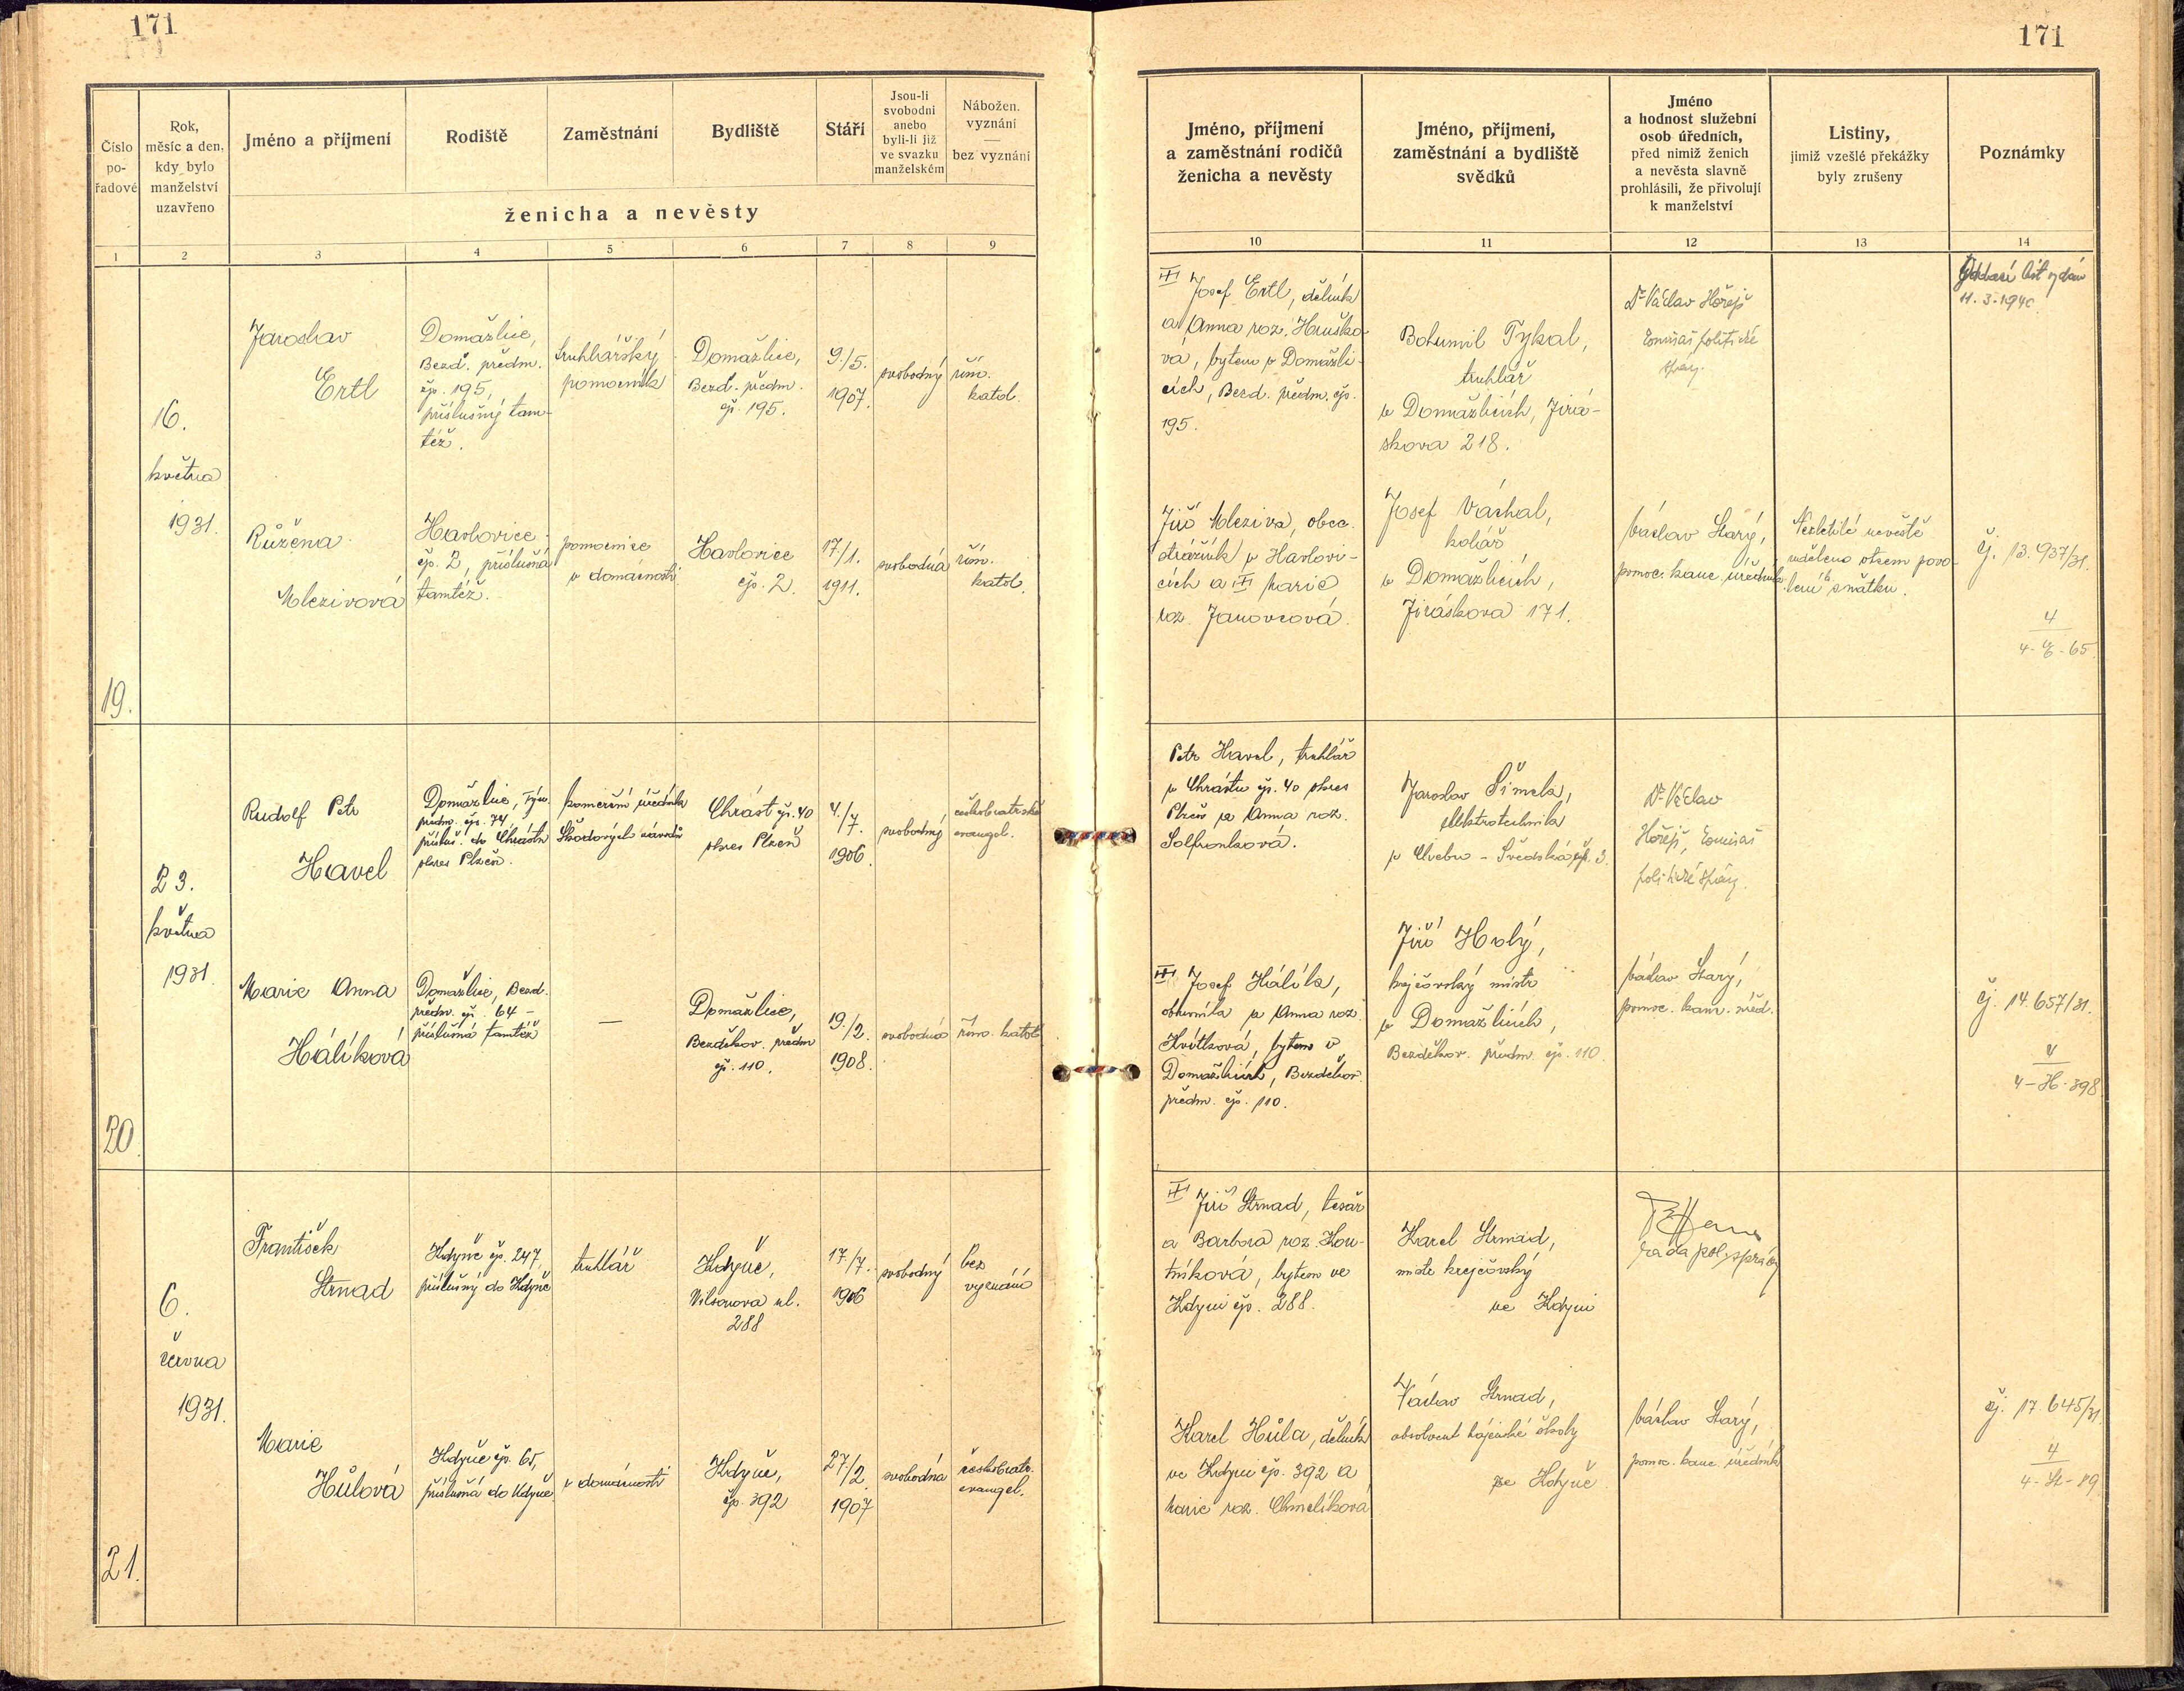 171
Číslo
po-
řadové
Rok,
měsíc a den,
kdy bylo
manželství
uzavřeno
Jméno a příjmení
Rodiště
Zaměstnání
Bydliště
Stáří
Jsou-li
svobodni
anebo
byli-li již
ve svazku
manželském
Nábožen.
vyznání
—
bez vyznání
ženicha a nevěsty
1
2
3
4
5
6
7
8
9
19.
16.
května
1931.
Jaroslav
Ertl
Domažlice,
Bezd. předm.
čp. 195,
příslušný tam-
též.
truhlářský
pomocník
Domažlice,
Bezd. předm.
čp. 195.
9./5.
1907.
svobodný
řím.
katol.
Růžena
Mlezivová
Havlovice
čp. 2, příslušná
tamtéž.
pomocnice
v domácnosti
Havlovice
čp. 2.
17/1.
1911.
svobodná
řím.
katol.
20.
23.
května
1931.
Rudolf Petr
Havel
Domažlice, Týn.
předm. čp. 74,
přísluš. do Chrástu
okres Plzeň.
komerční úředník
Škodových závodů
Chrást čp. 40
okres Plzeň
4./7.
1906.
svobodný
českobratrské
evangel.
Marie Anna
Hálíková
Domažlice, Bezd.
předm. čp. 64 –
příslušná tamtéž
—
Domažlice,
Bezděkov. předm
čp. 110.
19./2.
1908.
svobodná
řím. katol.
21.
6.
června
1931.
František
Strnad
Kdyně čp. 247,
příslušný do Kdyně
truhlář
Kdyně,
Vilsonova ul.
288
17./7.
1906
svobodný
bez
vyznání
Marie
Hůlová
Kdyně čp. 65,
příslušná do Kdyně
v domácnosti
Kdyně,
čp. 392
27/2.
1907
svobodná
českobratr.
evangel.
171
Jméno, příjmení
a zaměstnání rodičů
ženicha a nevěsty
Jméno, příjmení,
zaměstnání a bydliště
svědků
Jméno
a hodnost služební
osob úředních,
před nimiž ženich
a nevěsta slavně
prohlásili, že přivolují
k manželství
Listiny,
jimiž vzešlé překážky
byly zrušeny
Poznámky
10
11
12
13
14
Josef Ertl, dělník
a Anna roz. Hruško-
vá, bytem v Domažli-
cích, Bezd. předm. čp.
195.
Bohumil Tykal,
truhlář
v Domažlicích, Jirá-
skova 218.
Dr Václav Hořejš
komisař politické
správy.
Oddací list vydán
11.3.1940.
Jiří Mleziva, obec.
strážník v Havlovi-
cích a Marie
roz. Janovcová.
Josef Váchal,
kolář
v Domažlicích,
Jiráskova 171.
Václav Starý,
pomoc. kanc. úředník
Nezletilé nevěstě
uděleno otcem povo-
lení k sňatku.
čj. 13.937/31.
4
4-E-65.
Petr Havel, truhlář
v Chrástu čp. 40 okres
Plzeň a Anna roz.
Jaroslav Šimek,
elektrotechnik
v Chebu – Švédská čp. 3.
Dr Václav
Hořejš, komisař
politické správy.
Josef Hálík,
obchodník a Anna roz.
Květková, bytem v
Domažlicích, Bezděkov.
předm. čp. 110.
Jiří Holý,
krejčovský mistr
v Domažlicích,
Bezděkov. předm. čp. 110.
Václav Starý,
pomoc. kanc. úřed.
čj. 14.657/31.
4
4-H-398
Jiří Strnad, tesař
a Barbora roz. Kou-
tníková, bytem ve
Kdyni čp. 288.
Karel Strnad,
mistr krejčovský
ve Kdyni
rada pol. správy
Karel Hůla, dělník
ve Kdyni čp. 392 a
Marie roz. Chmelíková
Václav Strnad,
absolvent hájenské školy
ze Kdyně
Václav Starý,
pomoc. kanc. úředník
čj. 17.645/31.
4
4-St-19